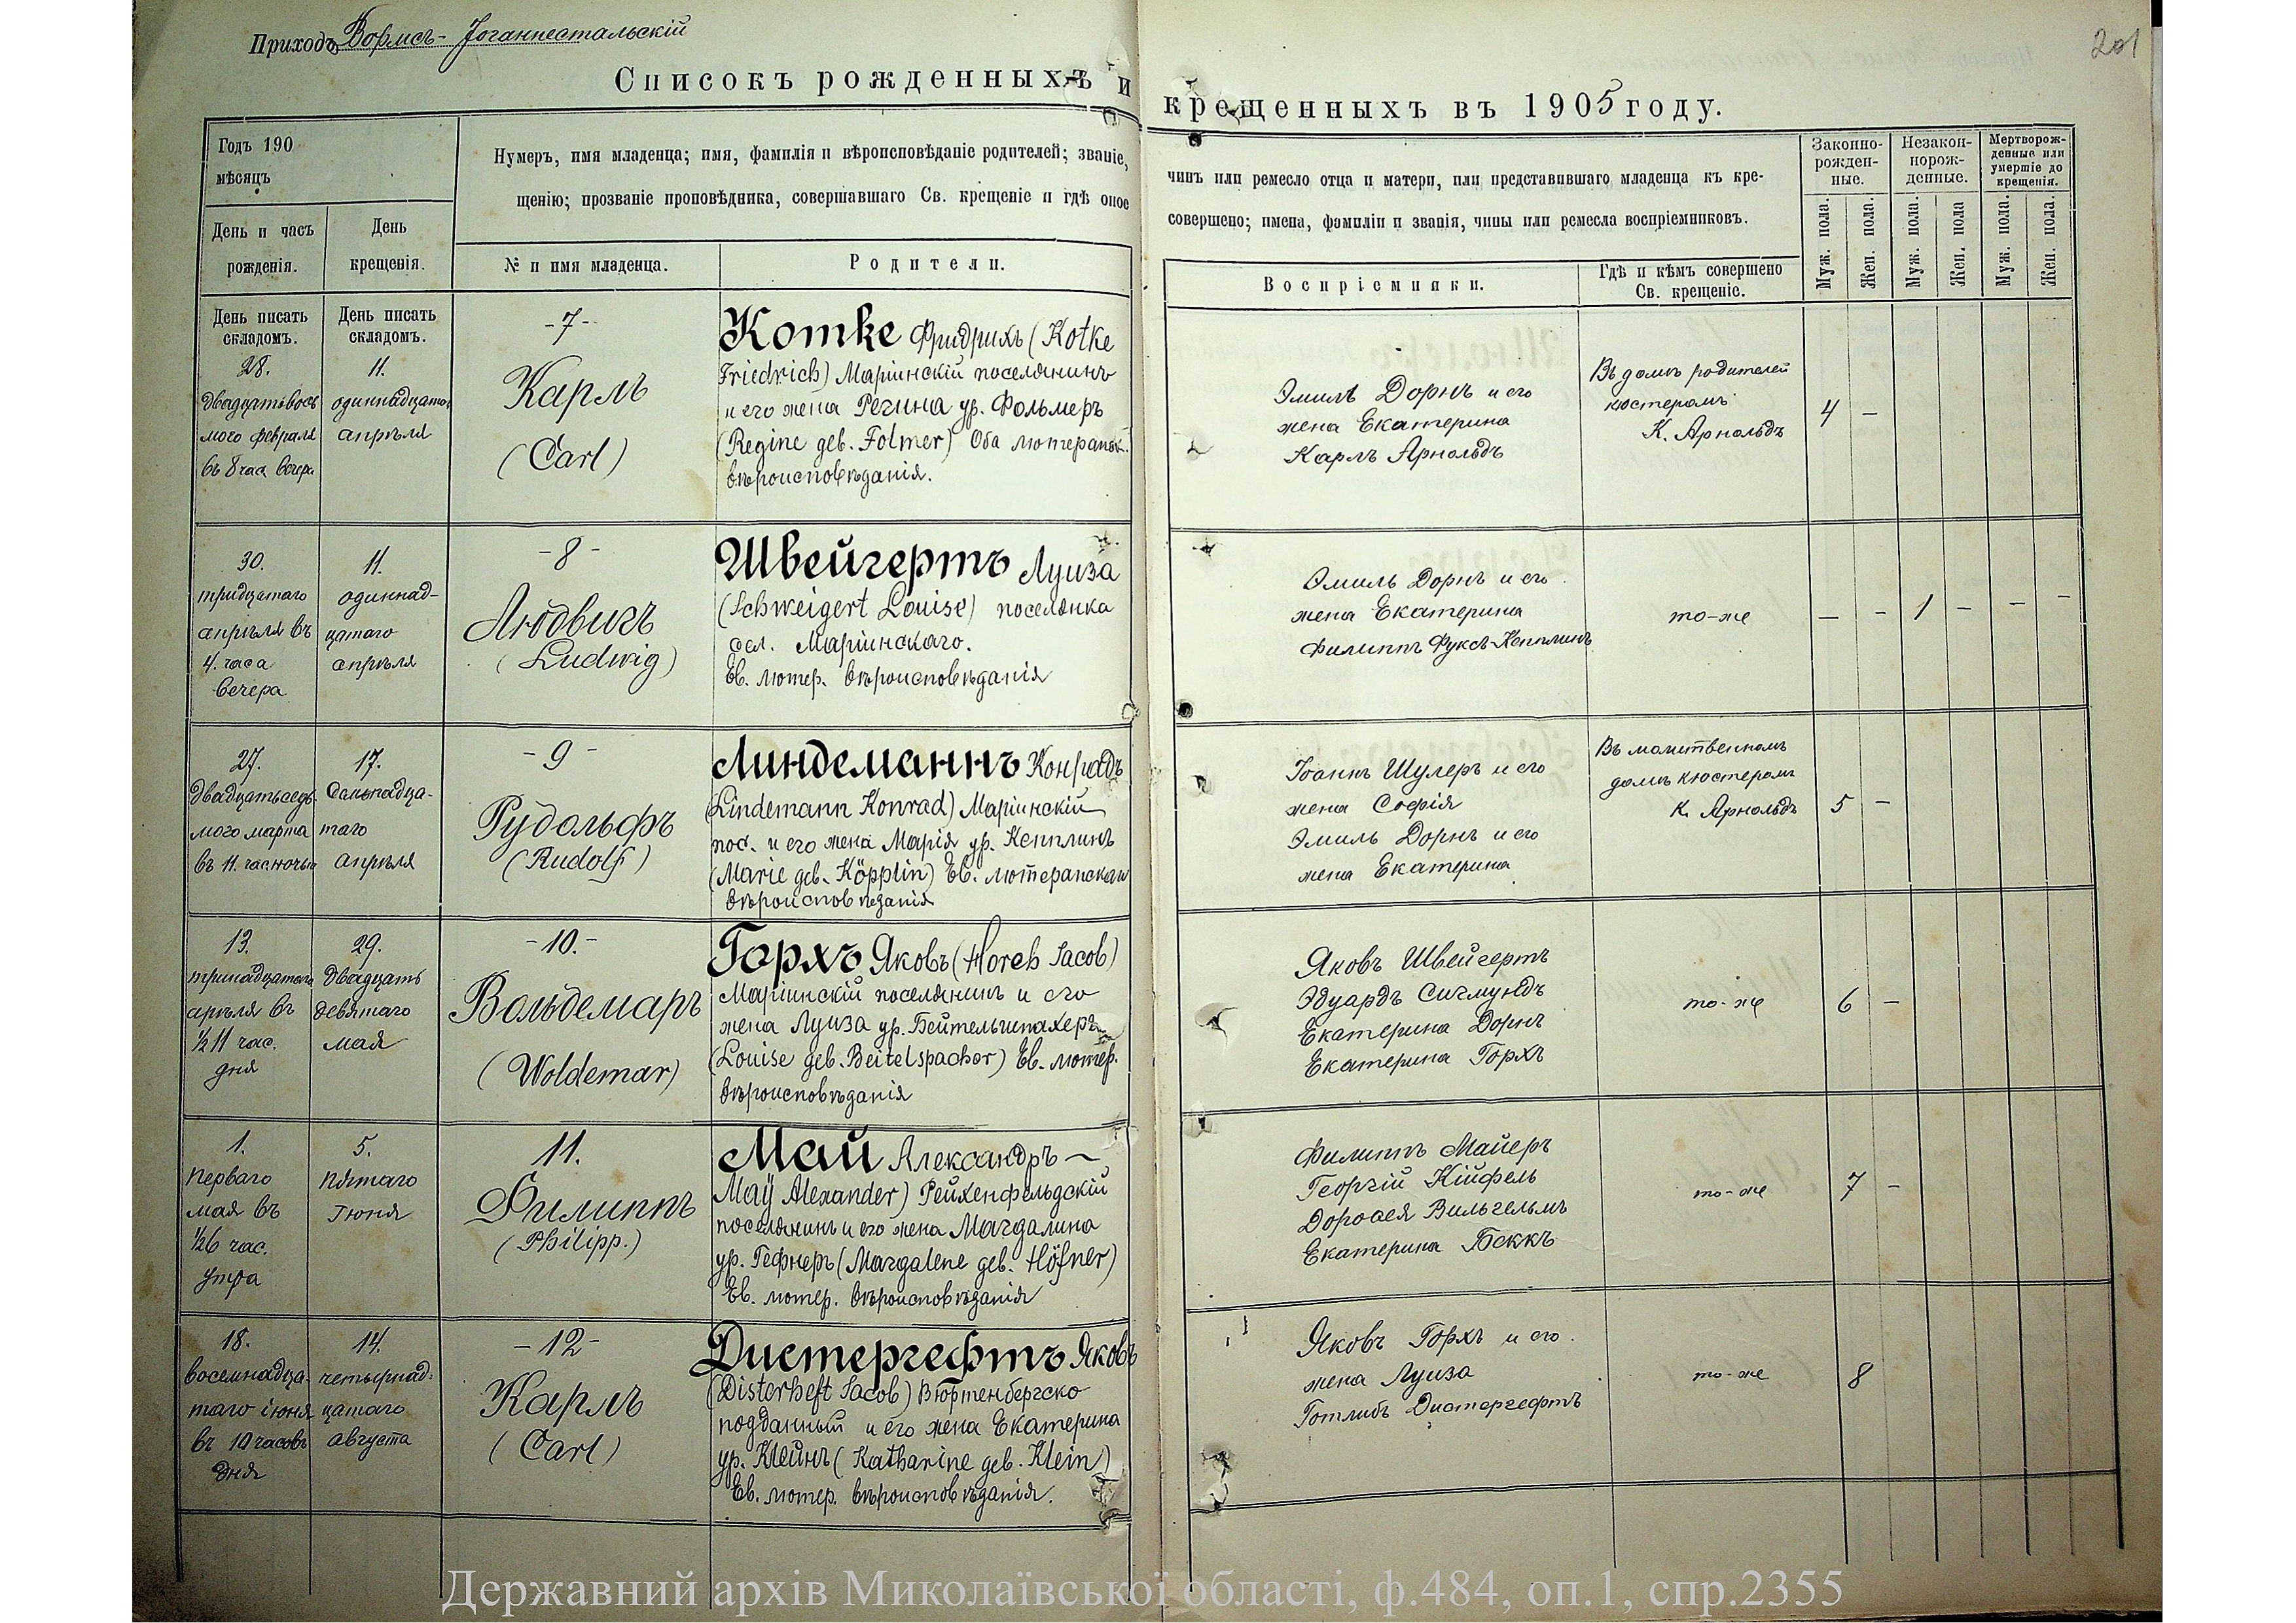 Приходъ Вормсъ-Іоганнестальскій
201
Списокъ рожденныхъ и крещенныхъ въ 1905 году.
Годъ 190
мѣсяцъ
День и часъ
рожденія.
День
крещенія.
Нумеръ, имя младенца; имя, фамилія и вѣроисповѣданіе родителей; званіе, чинъ или ремесло отца и матери, или представившаго младенца къ кре-
щенію; прозваніе проповѣдника, совершавшаго Св. крещеніе и гдѣ оное совершено; имена, фамиліи и званія, чины или ремесла воспріемниковъ.
№ и имя младенца.
Родители.
Воспріемники.
Гдѣ и кѣмъ совершено
Св. крещеніе.
Законно-
рожден-
ные.
Незакон-
норож-
денные.
Мертворож-
денные или
умершіе до
крещенія.
Муж. пола.
Жен. пола.
Муж. пола.
Жен. пола
Муж. пола.
Жен. пола.
День писать
складомъ.
День писать
складомъ.
28.
двадцатьвось
мого февраля
въ 8 час. вечер.
11.
одиннадцатаго
апрѣля
-7-
Карлъ
(Carl)
Котке Фридрихъ (Kotke
Friedrich) Маріинскій поселянинъ
и его жена Регина ур. Фольмеръ
(Regine geb. Folmer) Оба лютеранск.
вѣроисповѣданія.
Эмиль Дорнъ и его
жена Екатерина
Карлъ Арнольдъ
Въ домѣ родителей
кюстеромъ
К. Арнольдъ
4 -
30.
тридцатаго
апрѣля въ
4. часа
вечера
11.
одиннад-
цатаго
апрѣля
-8-
Людвигъ
(Ludwig)
Швейгертъ Луиза
(Schweigert Louise) поселянка
сел. Маріинскаго.
Ев. лютер. вѣроисповѣданія
Эмиль Дорнъ и его
жена Екатерина
Филиппъ Фуксъ-Кепплинъ
то-же
- - 1 - - -
27.
двадцатьседь-
мого марта
въ 11. час. ночью
17.
Семнадца-
таго
апрѣля
-9-
Рудольфъ
(Rudolf)
Линдеманнъ Конрадъ
Lindemann Konrad) Маріинскій
пос. и его жена Марія ур. Кепплинъ
(Marie geb. Köpplin) Ев. лютеранскаго
вѣроисповѣданія
Іоаннъ Шулеръ и его
жена Софія
Эмиль Дорнъ и его
жена Екатерина
Въ молитвенномъ
домѣ кюстеромъ
К. Арнольдъ
5 -
13.
тринадцатаго
апрѣля въ
½ 11 час.
дня
29.
двадцать
девятаго
мая
-10.-
Вольдемаръ
(Woldemar)
Горхъ Яковъ (Horch Jacob)
Маріинскій поселянинъ и его
жена Луиза ур. Бейтельшпахеръ
(Louise geb. Beitelspacher) Ев. лютер.
вѣроисповѣданія
Яковъ Швейгертъ
Эдуардъ Сигмундъ
Екатерина Дорнъ
Екатерина Горхъ
то-же
6 -
1.
Перваго
мая въ
½6 час.
утра
5.
Пятаго
Іюня
11.
Филиппъ
(Philipp.)
Май Александръ -
Maÿ Alexander) Рейхенфельдскій
поселянинъ и его жена Магдалина
ур. Гефнеръ (Magdalene geb. Höfner)
Ев. лютер. вѣроисповѣданія
Филиппъ Майеръ
Георгій Кнйфель
Доротея Вильгельмъ
Екатерина Беккъ
то-же
7 -
18.
восемнадца-
таго іюня
въ 10 часовъ
дня
14.
четырнад-
цатаго
августа
-12-
Карлъ
(Carl)
Дистергефтъ Яковъ
(Disterheft Jacob) Вюртенбергско
подданный и его жена Екатерина
ур. Клейнъ (Katharine geb. Klein)
Ев. лютер. вѣроисповѣданія.
Яковъ Горхъ и его
жена Луиза
Готлибъ Дистергефтъ
то-же
8
Державний архів Миколаївської області, ф.484, оп.1, спр.2355